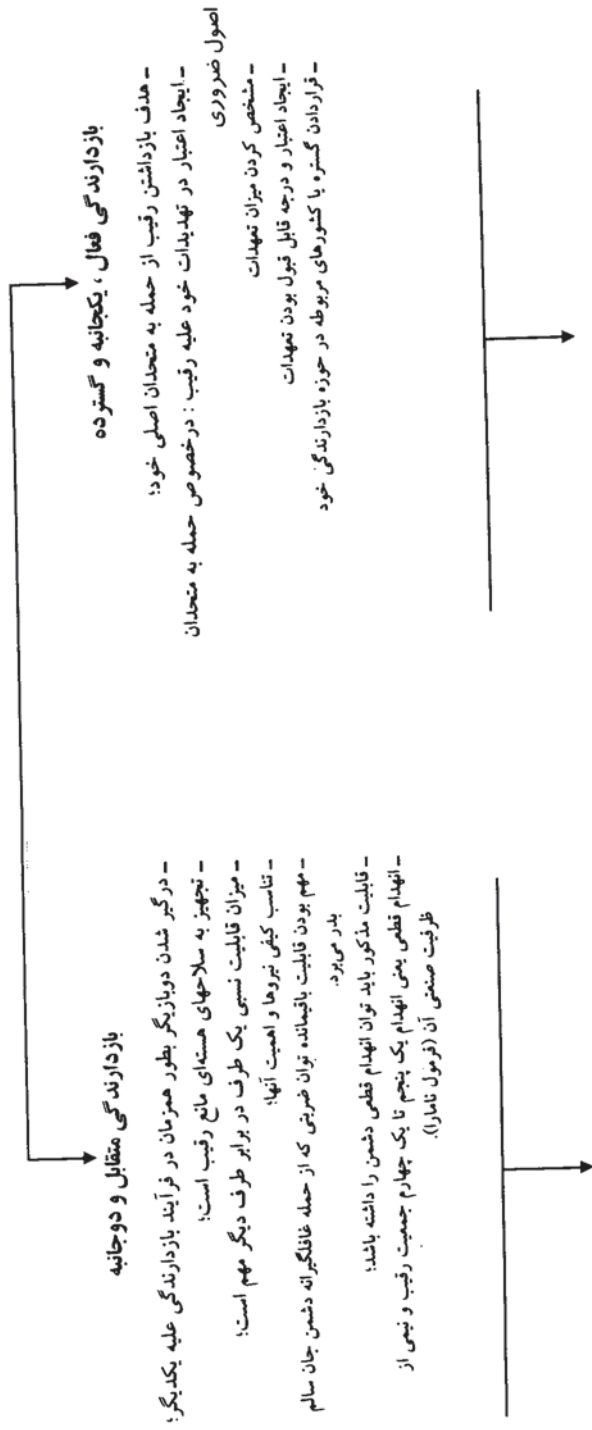 بازدارندگی فعال ، یکجانبه و گسترده
- هدف بازداشتن رقیب از حمله به متحدان اصلی خود؛
- ایجاد اعتبار در تهدیدات خود علیه رقیب : درخصوص حمله به متحدان
اصول ضروری
- مشخص کردن میزان تعهدات
- ایجاد اعتبار و درجه قابل قبول بودن تعهدات
- قراردادن گستره یا کشورهای مربوطه در حوزه بازدارندگی خود
بازدارندگی متقابل و دوجانبه
- درگیر شدن دوبازیگر بطور همزمان در فرآیند بازدارندگی علیه یکدیگر؛
- تجهیز به سلاحهای هسته‌ای مانع رقیب است؛
- میزان قابلیت نسبی یک طرف در برابر طرف دیگر مهم است؛
- تناسب کیفی نیروها و اهمیت آنها؛
- مهم بودن قابلیت باقیمانده توان ضربتی که از حمله غافلگیرانه دشمن جان سالم
بدر می‌برد.
- قابلیت مذکور باید توان انهدام قطعی دشمن را داشته باشد؛
- انهدام قطعی یعنی انهدام یک پنجم تا یک چهارم جمعیت رقیب و نیمی از
ظرفیت صنعتی آن (فرمول نامارا).